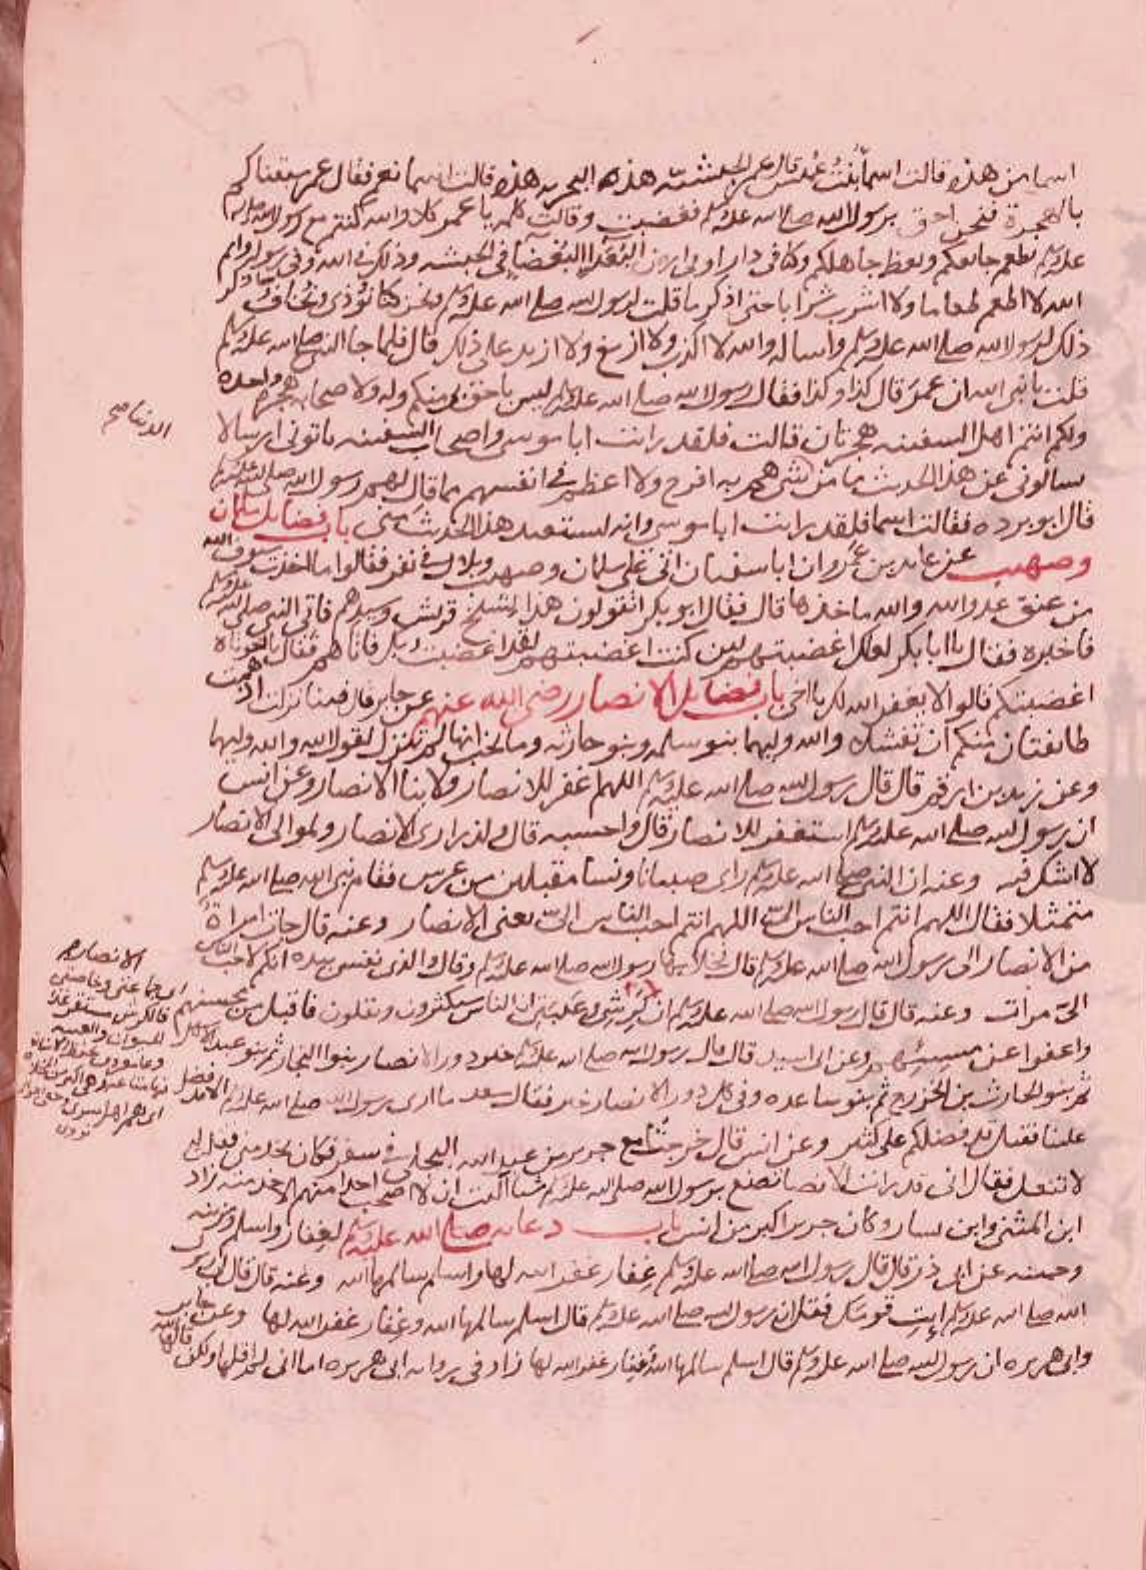 اسما من هذه قالت اسما بنت عميس قال عمر الحبشية هذه البحرية هذه قالت اسما نعم فقال عمر سبقناكم
بالهجرة فنحن احق برسول الله صلى الله عليه وسلم فغضبت وقالت كلمة يا عمر كلا والله كنتم مع رسول الله صلى الله
عليه وسلم يطعم جائعكم ويعظ جاهلكم وكنا في دار او في ارض البعدا البغضا في الحبشة وذلك في الله وفي رسوله وايم
الله لا اطعم طعاما ولا اشرب شرابا حتى اذكر ما قلت لرسول الله صلى الله عليه وسلم ونحن كنا نوذى ونخاف وساذكر
ذلك لرسول الله صلى الله عليه وسلم واساله والله لا اكذب ولا ازيغ ولا ازيد على ذلك قال فلما جا النبي صلى الله عليه وسلم
قلت يا نبي الله ان عمر قال كذا وكذا فقال رسول الله صلى الله عليه وسلم ليس باحق بي منكم وله ولاصحابه هجرة واحدة
ولكم انتم اهل السفينة هجرتان قالت فلقد رايت ابا موسى واصحاب السفينة ياتوني ارسالا
يسالوني عن هذا الحديث ما من شي هم به افرح ولا اعظم في انفسهم مما قال لهم رسول الله صلى الله عليه وسلم
قال ابو برده فقالت اسما فلقد رايت ابا موسى وانه ليستعيد هذا الحديث مني باب فضايل سلمان
وصهيب عن عايد بن عمرو ان ابا سفيان اتى على سلمان وصهيب وبلال في نفر فقالوا ما اخذت سيوف الله
من عنق عدو الله والله ماخذها قال فقال ابو بكر اتقولون هذا لشيخ قريش وسيدهم فاتى النبي صلى الله عليه وسلم
فاخبره فقال يا ابا بكر لعلك اغضبتهم لين كنت اغضبتهم لقد اغضبت ربك فاتاهم فقال يا اخوتاه
اغضبتكم قالوا لا يغفر الله لك يا اخي باب فضايل الانصار رضي الله عنهم عن جابر قال فينا نزلت اذ همت
طايفتان منكم ان تفشلا والله وليهما بنو سلمه وبنو حارثه وما نحب انها لم تنزل لقول الله والله وليهما
وعن زيد بن ارقم قال قال رسول الله صلى الله عليه وسلم اللهم اغفر للانصار ولابنا الانصار وعن انس
ان رسول الله صلى الله عليه وسلم استغفر للانصار قال واحسبه قال ولذراري الانصار ولموالي الانصار
لا اشك فيه وعنه ان النبي صلى الله عليه وسلم راى صبيانا ونسا مقبلين من عرس فقام نبي الله صلى الله عليه وسلم
متمثلا فقال اللهم انتم احب الناس الي اللهم انتم احب الناس الي يعني الانصار وعنه قال جات امراة
من الانصار الى رسول الله صلى الله عليه وسلم قال فخلا بها رسول الله صلى الله عليه وسلم وقال والذي نفسي بيده انكم لاحب الناس
الي مرات وعنه قال قال رسول الله صلى الله عليه وسلم ان كرشي وعيبتي ان الناس سيكثرون ويقلون فاقبلوا من محسنهم
واعفوا عن مسيئهم وعن ابي اسيد قال قال رسول الله صلى الله عليه وسلم خير دور الانصار بنوا النجار ثم بنو عبد الاشهل
ثم بنو الحارث بن الخزرج ثم بنو ساعده وفي كل دور الانصار خير فقال سعد ما ارى رسول الله صلى الله عليه وسلم الا قد فضل
علينا فقيل قد فضلكم على كثير وعن انس قال خرجت مع جرير بن عبد الله البجلي في سفر فكان يخدمني فقلت له
لا تفعل فقال اني قد رايت الانصار تصنع برسول الله صلى الله عليه وسلم شيا اليت ان لا اصحب احدا منهم الا خدمته زاد
ابن المثنى وابن بشار وكان جرير اكبر من انس باب دعائه صلى الله عليه وسلم لغفار واسلم ومزينه
وجهينه عن ابي ذر قال قال رسول الله صلى الله عليه وسلم غفار غفر الله لها واسلم سالمها الله وعنه قال قال لي رسول
الله صلى الله عليه وسلم ايت قومك فقل ان رسول الله صلى الله عليه وسلم قال اسلم سالمها الله وغفار غفر الله لها وعن جابر
وابي هريره ان رسول الله صلى الله عليه وسلم قال اسلم سالمها الله وغفار غفر الله لها زاد في رواية ابي هريره اما اني لم اقلها ولكن قالها الله
الدنيا صح
الانصار
اي جماعتي وخاصتي